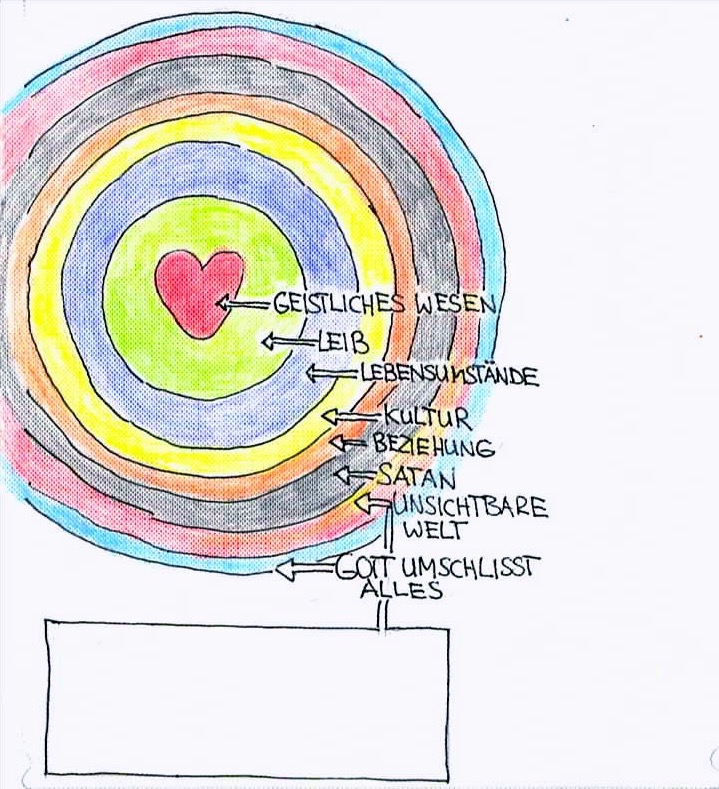 GEISTLICHES WESEN
LEIB
LEBENSUMSTÄNDE
KULTUR
BEZIEHUNG
SATAN
UNSICHTBARE
WELT
GOTT UMSCHLISST
ALLES